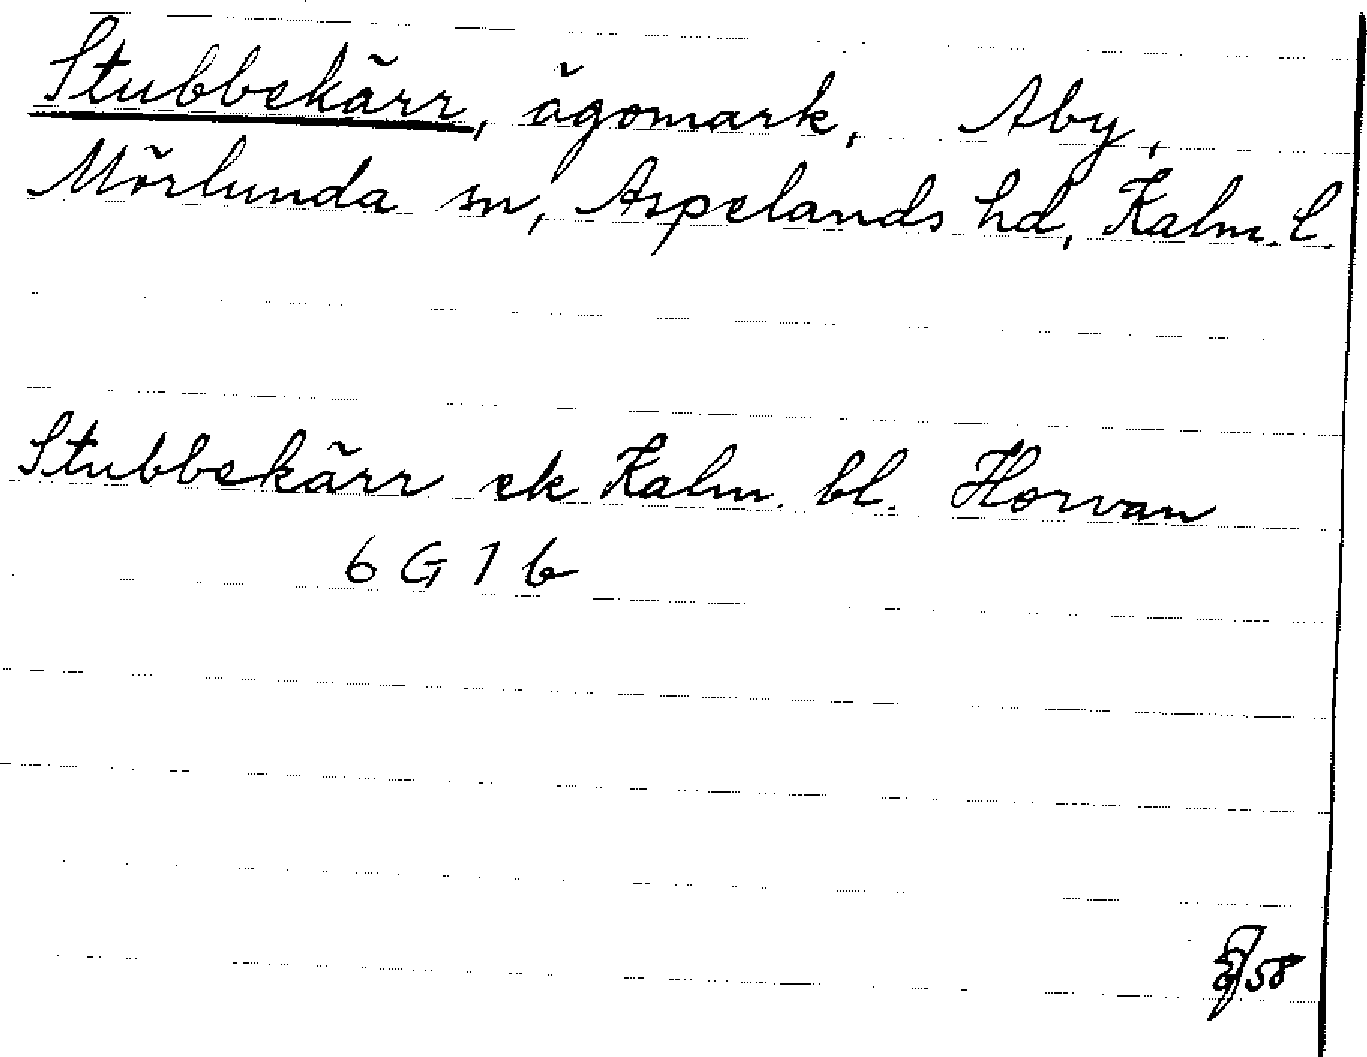 Stubbekärr, ägomark, Åby,
Mörlunda sn, Aspelands hd, Kalm. l.
Stubbekärr ek Kalm. bl. Horvan
6 G 1 b
58